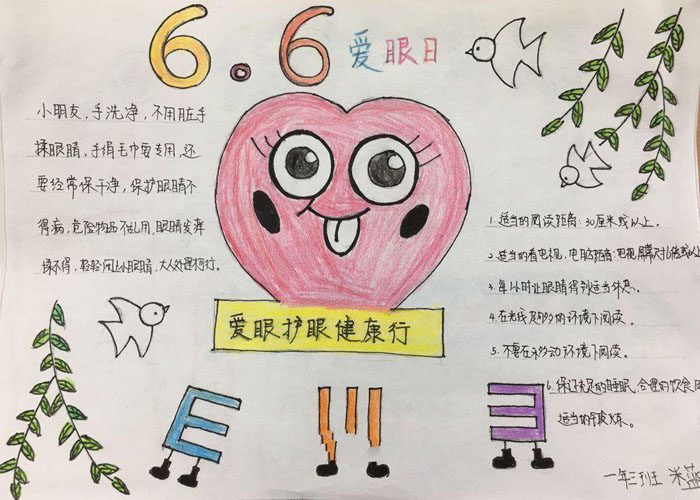 6.6 爱眼日
小朋友,手洗净,不用脏手
揉眼睛,手绢毛巾要专用,还
要经常保干净,保护眼睛不
得病,危险物品不乱用,眼睛发痒
揉不得,轻轻闭上小眼睛,大人处理
爱眼护眼健康行
1.适当的阅读距离:30厘米或以上。
2.适当的看电视,电脑距离:电视屏幕尺寸6倍或以上
3.每1小时让眼睛得到适当休息。
4.在光线足够的环境下阅读。
5.不要在移动环境下阅读。
6.保证充足的睡眠,合理的饮食
适当的锻炼。
一年三班 米